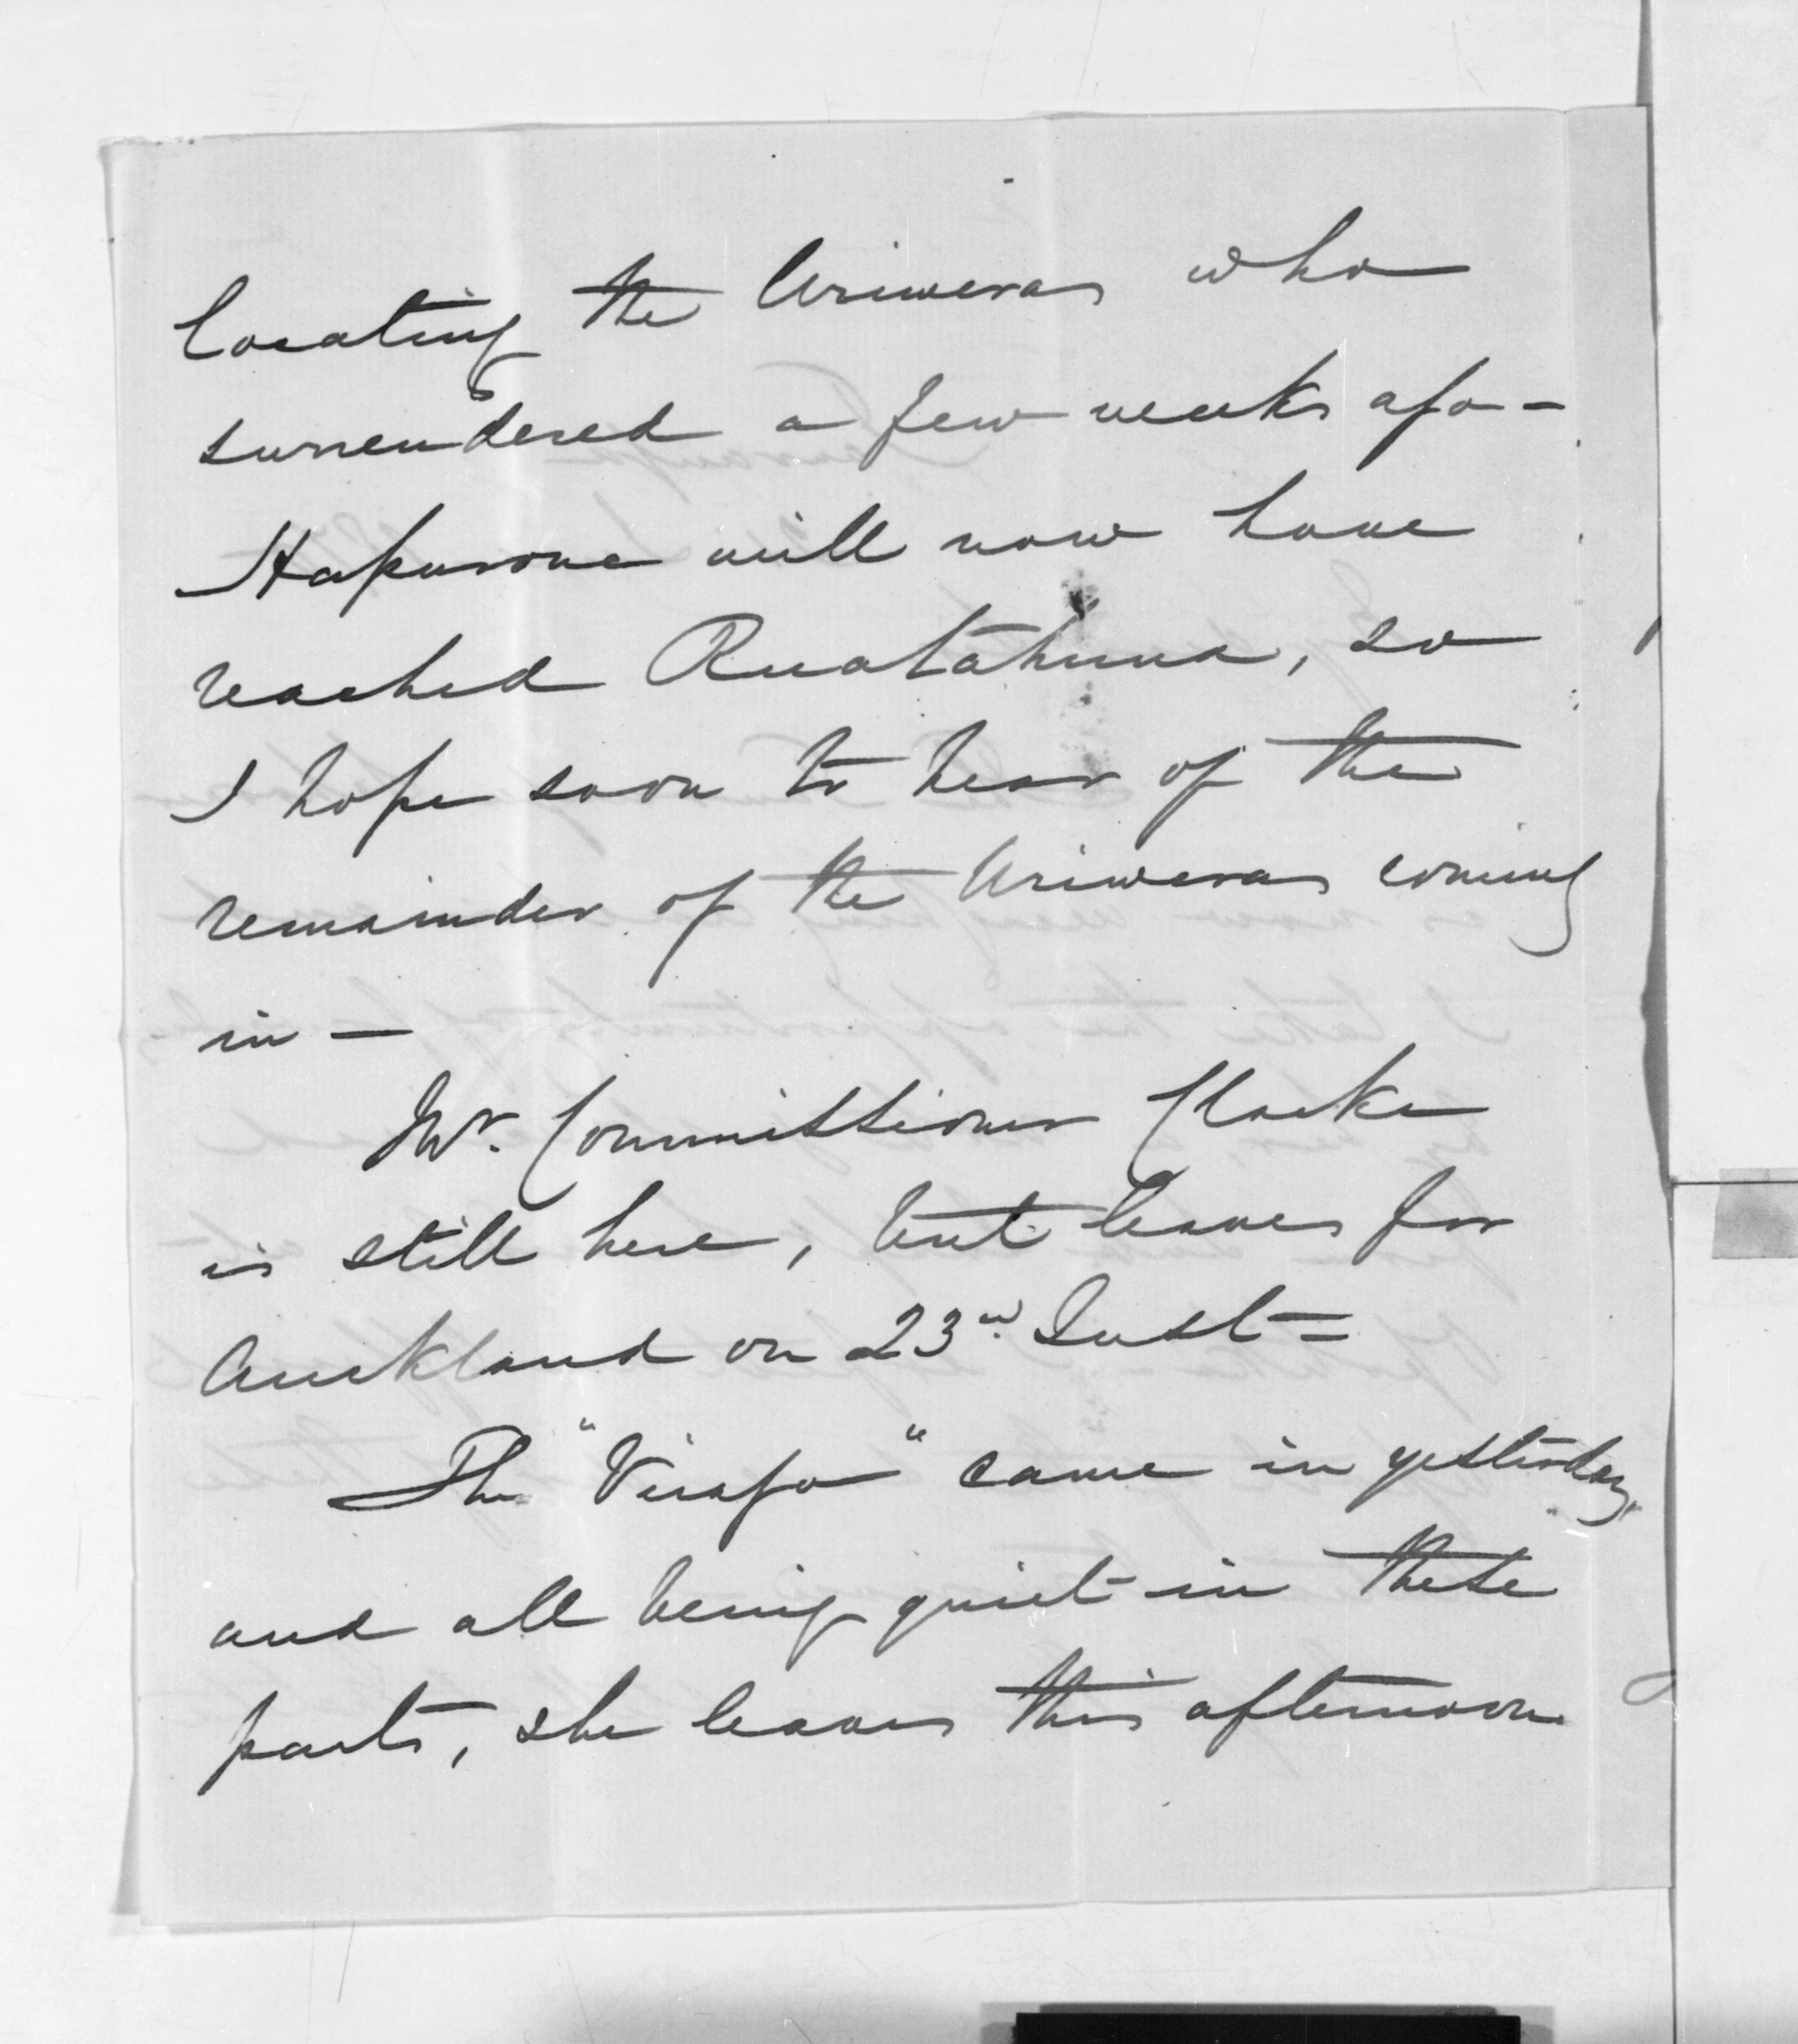 locating the Uriweras who
surrendered a few weeks ago -
Hapurona will now have
reached Ruatahuna, so
I hope soon to hear of the
remainder of the Uriweras coming
in —
Mr. Commissioner Clarke
is still here, but leaves for
Auckland on 23rd Inst =
The "Virago" came in yesterday,
and all being quiet in these
parts, she leaves this afternoon